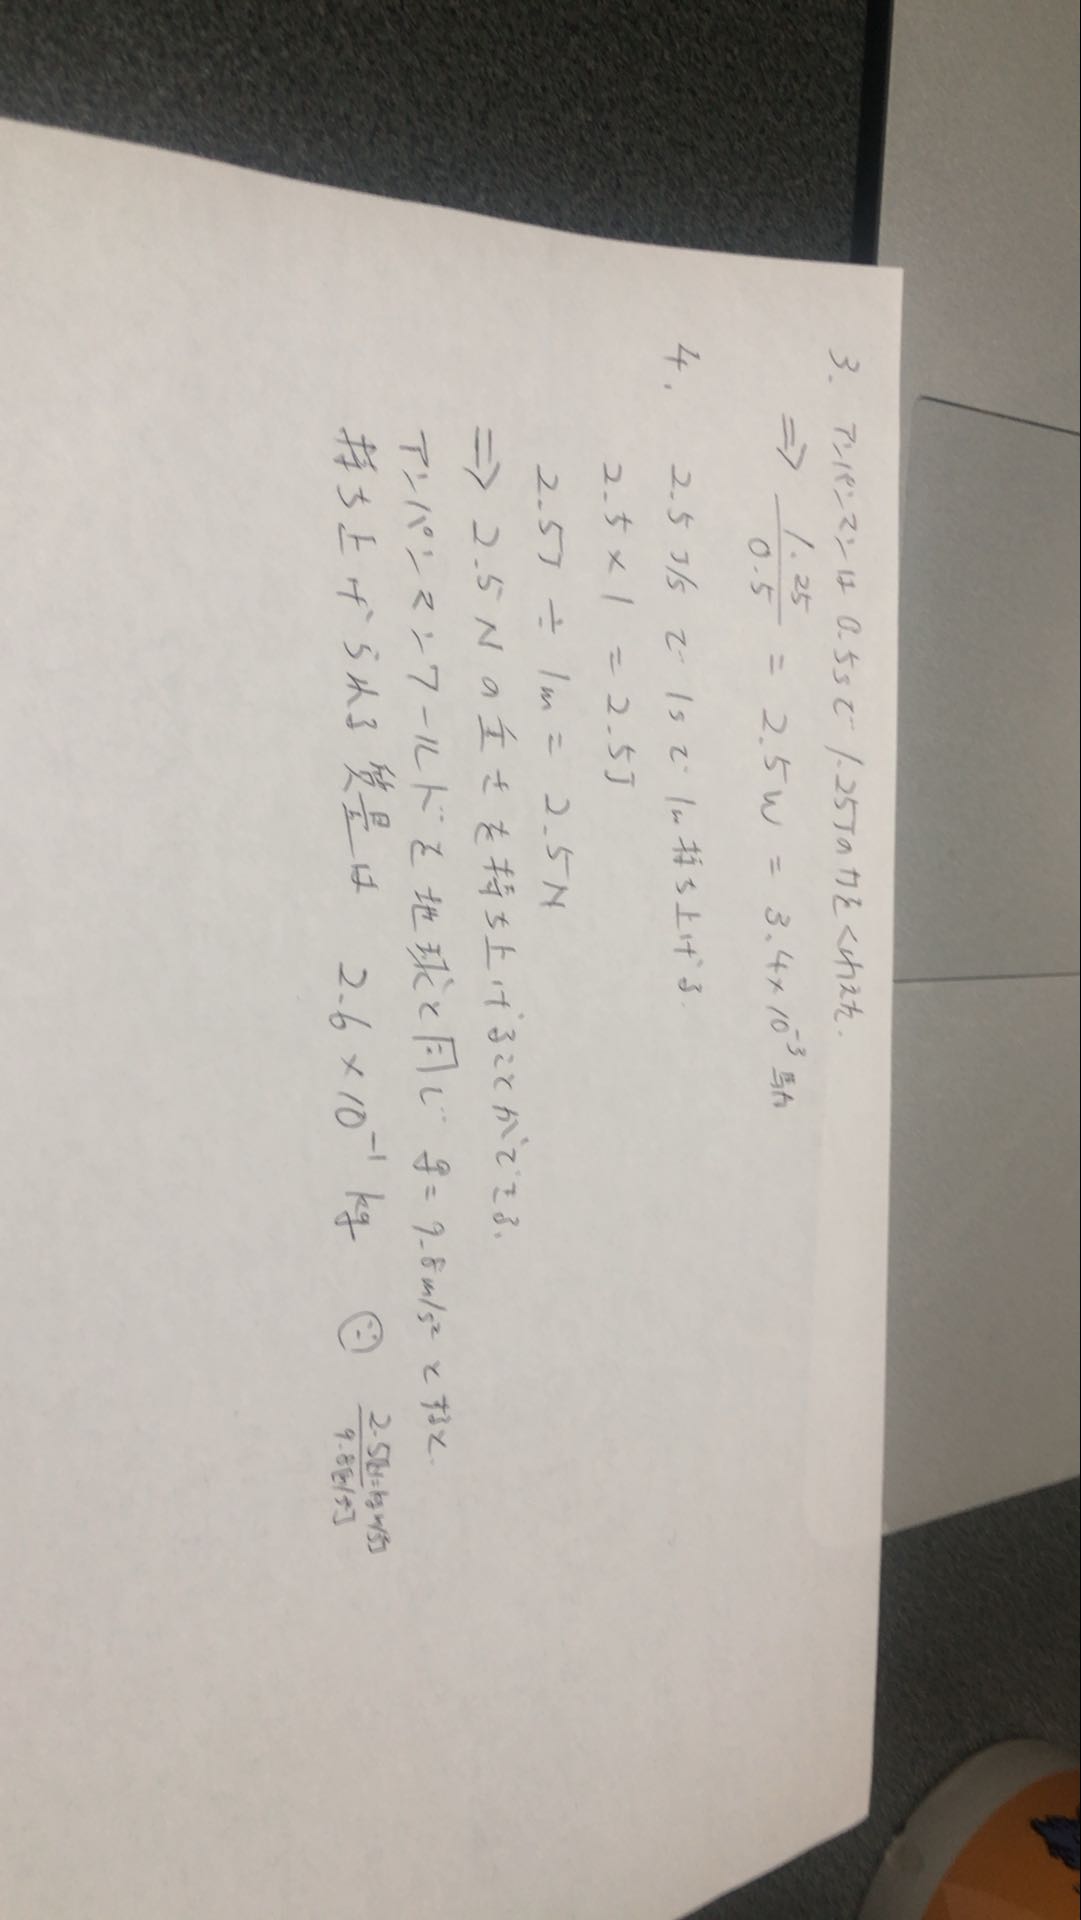 3. アンパンマンは 0.5sで 1.25Jの力をくわえた.
⇒ 1.25/0.5 = 2.5W = 3.4×10⁻³ 馬力
4. 2.5 J/s で 1s で 1m 持ち上げる.
2.5 × 1 = 2.5J
2.5J ÷ 1m = 2.5N
⇒ 2.5N の重さを持ち上げることができる.
アンパンマンワールドを地球と同じ g = 9.8m/s² とすると.
持ち上げられる質量は 2.6 × 10⁻¹ kg
2.5[N=kg m/s²]/9.8[m/s²]